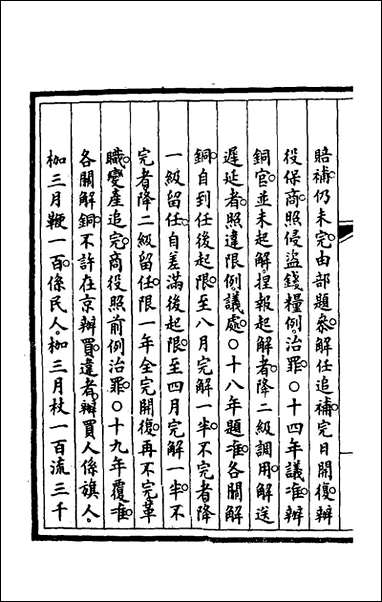 賠補仍未完由部題叅解任追補完日開復辦
役保商照侵盜錢糧例治罪○十四年議准辦
銅官並未起解捏報起解者降二級調用解送
遲延者照違限例議處○十八年題准各關解
銅自到任後起限至八月完解一半不完者降
一級留任自差滿後起限至四月完解一半不
完者降二級留任限一年全完開復再不完革
職變產追完商役照前例治罪○十九年覆准
各關解銅不許在京辦買違者辦買人係旗人
枷三月鞭一百係民人枷三月杖一百流三千